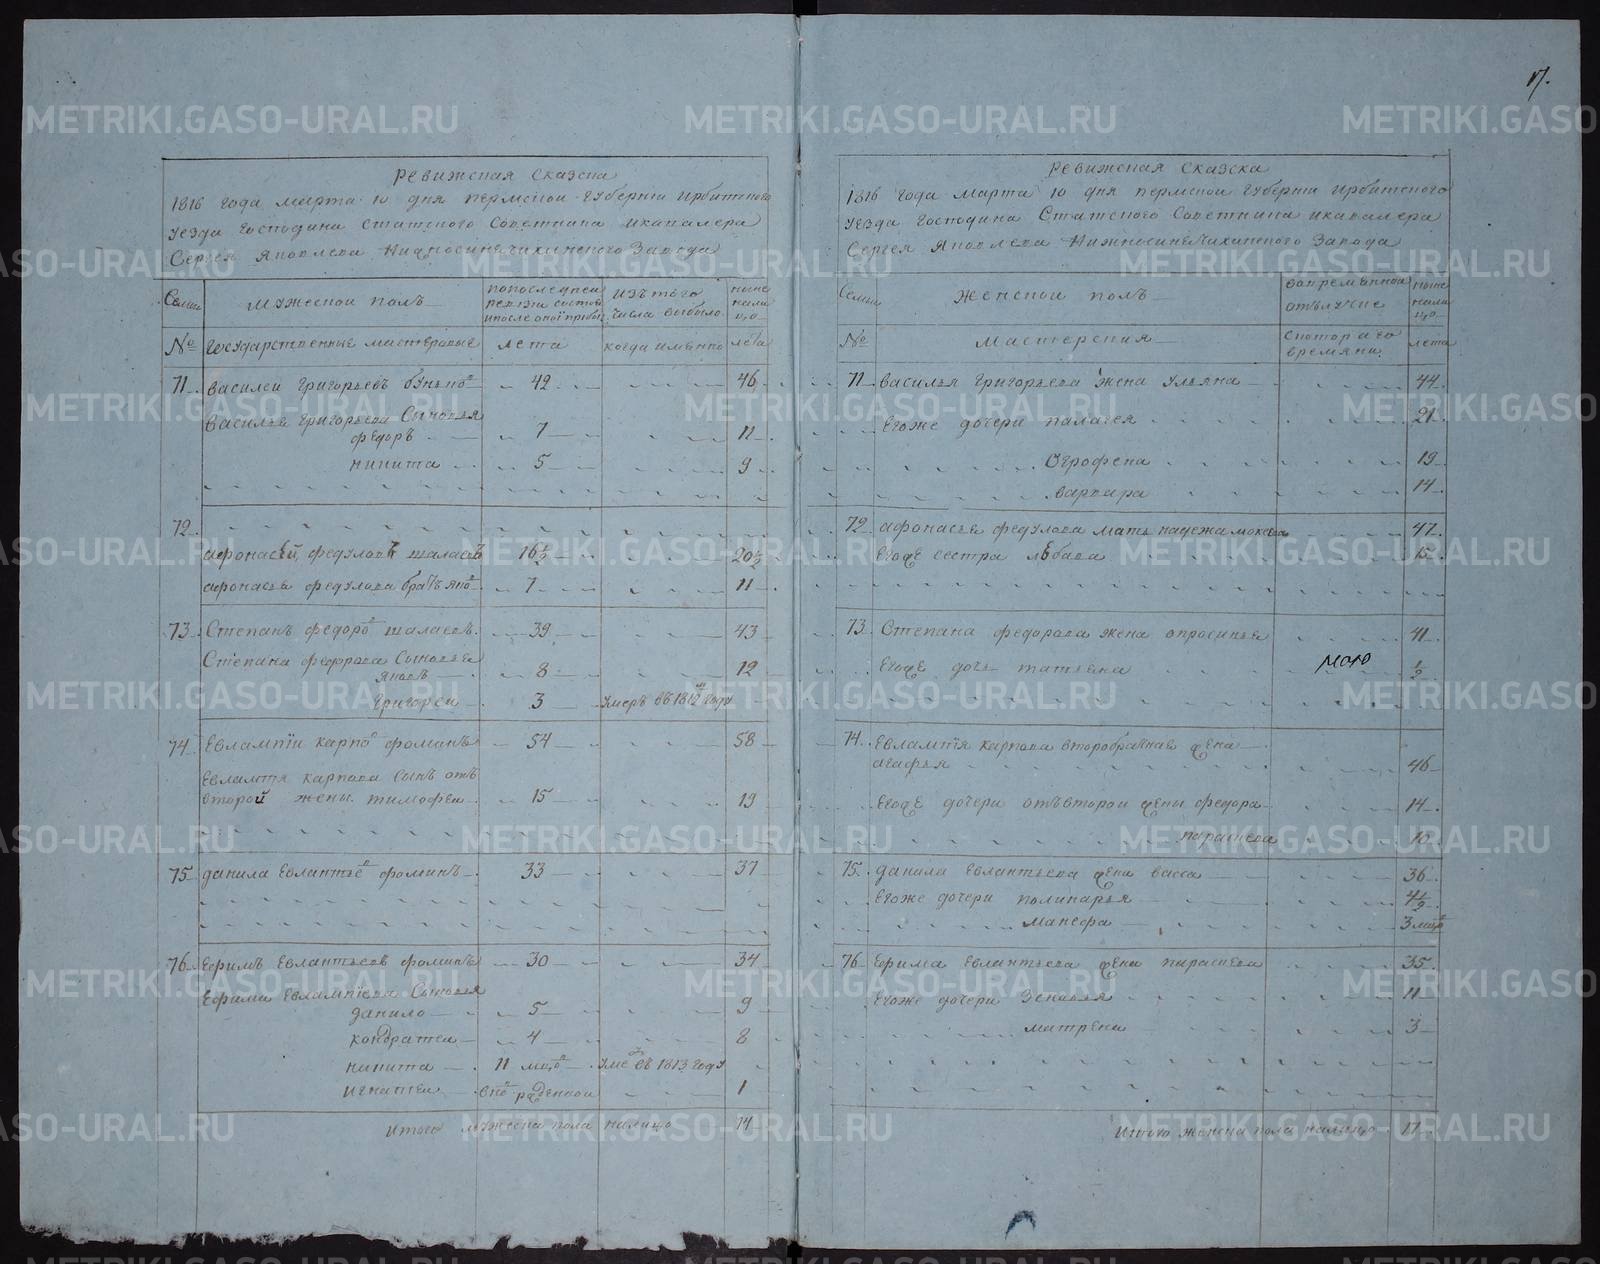 17.
Ревижская сказска
1816 года марта 10 дня пермской губернїи ирбитского
уезда господина Статского Советника икавалера
Сергея Яковлева Нижносинечихинского Завода
Семьи
Мужеской полъ
попоследнеи ревизи состоя ипосле оной прибы
изъ того числа выбыло
ныне налицо
№
государственные мастеровые
лета
когда имянно
лѣта
71 василеи григорьевъ буньков 42 46
василья григорьева Сыновья
федоръ 7 11
никита 5 9
72
афонасей федуловъ шалаевъ 16½ 20½
афонасья федулова братъ яков 7 11
73 Степанъ федоров шалаевъ 39 43
Степана федорова Сыновья
яковъ 8 12
григореи 3 умеръ въ 1812 году
74 Евлампїи карпов фоминъ 54 58
Евлампїя карпова Сынъ отъ
второй жены тимофеи 15 19
75 данила Евлантьев фоминъ 33 37
76 Ефимъ Евлантьевъ фоминъ 30 34
Ефима Евлампїева Сыновья
данило 5 9
кондратеи 4 8
никита 11 мцов умеръ въ 1813 году
игнатеи вновь рожденной 1
итого мужеска пола налицо 14
Ревижская сказска
1816 года марта 10 дня пермской губернїи ирбитского
уезда господина Статского Советника икавалера
Сергея Яковлева Нижносинечихинского Завода
Семьи
Женской полъ
вовременной отлучке
ныне налицо
№
мастерския
Скотораго времяни
лета
71 василья григорьева жена ульяна 44
Егоже дочери палагея 21
Огрофена 19
варвара 14
72 афонасья федулова мать надежа мокева 47
Егоже сестра любава 15
73 Степана федорова жена опросинья 41
Егоже дочь татьяна ½
мою
74 Евлампїя карпова второбрачнаѣ жена
агафья 46
Егоже дочери отъвторои жены федора 14
парасковья 10
75 данила Евлантьева жена васса 36
Егоже дочери поликарья 4½
манефа 3 мцов
76 Ефима Евлантьева жена параскева 35
Егоже дочери Зеновья 11
матрена 3
Итого женска пола налицо 17